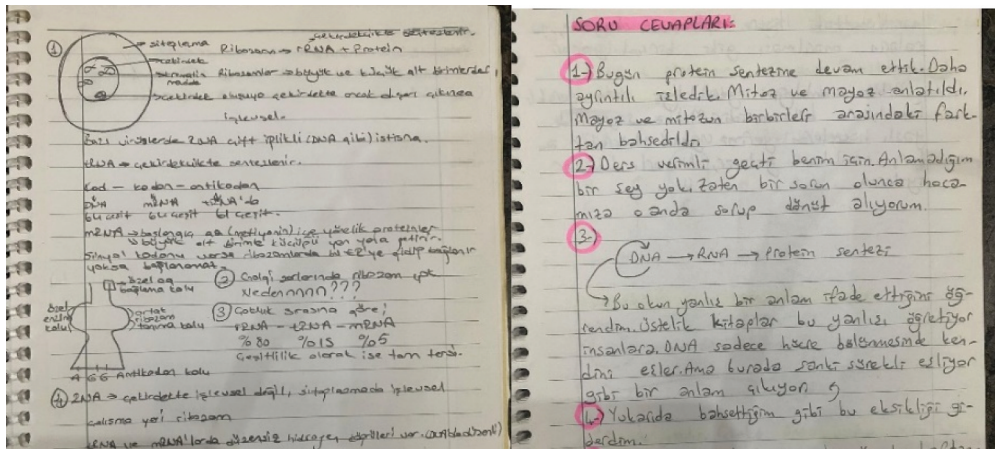 çekirdekçikte sentezlenir.
① sitoplazma Ribozom → rRNA + Protein
çekirdek
kromatin Ribozomlar → büyük ve küçük alt birimlerden,
madde
çekirdekte ancak dışarı çıkınca
işlevsel.
Bazı virüslerde RNA çift iplikli (DNA gibi) istisna.
rRNA → çekirdekçikte sentezlenir.
Kod - kodon - antikodon
DNA mRNA tRNA'da
64 çeşit 64 çeşit 61 çeşit.
mRNA → başlangıç aa (metiyonin)
büyük alt birimle küçüğü yan yana getirir.
Sinyal kodonu varsa ribozomlarda ER'ye gidip bağlanır
yoksa bağlanamaz.
özel aa
bağlama kolu
② Golgi ribozom yok
Nedennnnn???
özel
enzim
kolu
ortak
ribozom
tanıma kolu
③ Çokluk sırasına göre;
rRNA - tRNA - mRNA
%80 %15 %5
Çeşitlilik olarak ise tam tersi.
A G G Antikodon kolu
④ RNA → çekirdekte işlevsel değil, sitoplazmada işlevsel
çalışma yeri ribozom
ve mRNA'larda düzensiz hidrojen var.
SORU CEVAPLARI:
1-) Bugün protein sentezine devam ettik. Daha
ayrıntılı izledik. Mitoz ve mayoz anlatıldı.
Mayoz ve mitozun birbirleri arasındaki fark-
tan bahsedildi.
2-) Ders verimli geçti benim için. Anlamadığım
bir şey yok. Zaten bir sorun olunca hoca-
mıza o anda sorup dönüt alıyorum.
3-)
DNA → RNA → Protein sentezi
Bu okun yanlış bir anlam ifade ettiğini öğ-
rendim. Üstelik kitaplar bu yanlışı öğretiyor
insanlara. DNA sadece hücre bölünmesinde ken-
dini eşler. Ama burada sanki sürekli eşliyor
gibi bir anlam çıkıyor.
4-) Yukarıda bahsettiğim gibi bu eksikliği gi-
derdim.